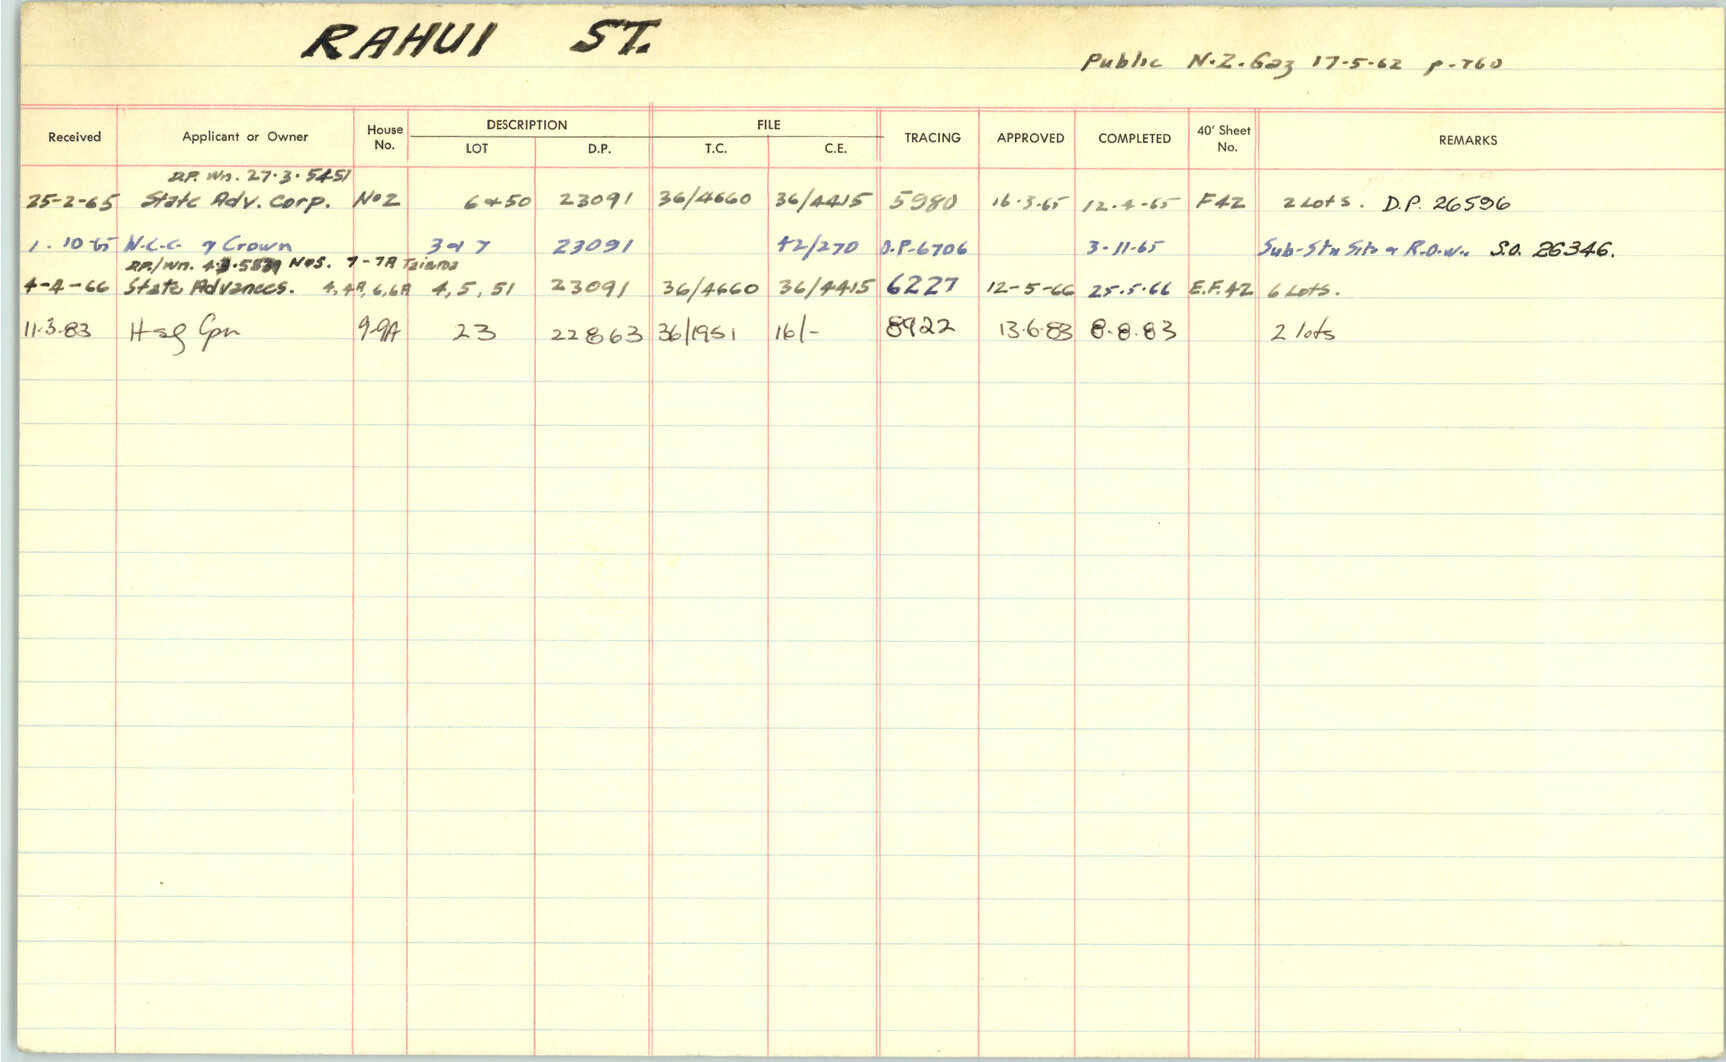 RAHUI ST.
Public N.Z.Gaz 17-5-62 p-760
Received Applicant or Owner House No. DESCRIPTION LOT D.P. FILE T.C. C.E. TRACING APPROVED COMPLETED 40' Sheet No. REMARKS
D.P. Wn. 27.3.5451
25-2-65 State Adv. Corp. No2 6&50 23091 36/4660 36/4415 5980 16.3.65 12.4.65 F42 2 Lots. D.P. 26596
1.10.65 N.C.C. & Crown 3&7 23091 42/270 D.P-6706 3-11-65 Sub-Stn Site & R.O.W. S.O. 26346.
D.P./Wn. NoS. 7-7A Taiama
4-4-66 State Advances. 4,4A,6,6A 4,5,51 23091 36/4660 36/4415 6227 12-5-66 25.5.66 E.F.42 6 Lots.
11.3.83 Hsg Cpn 9-9A 23 22863 36/1951 16/- 8922 13.6.83 8.8.83 2 lots